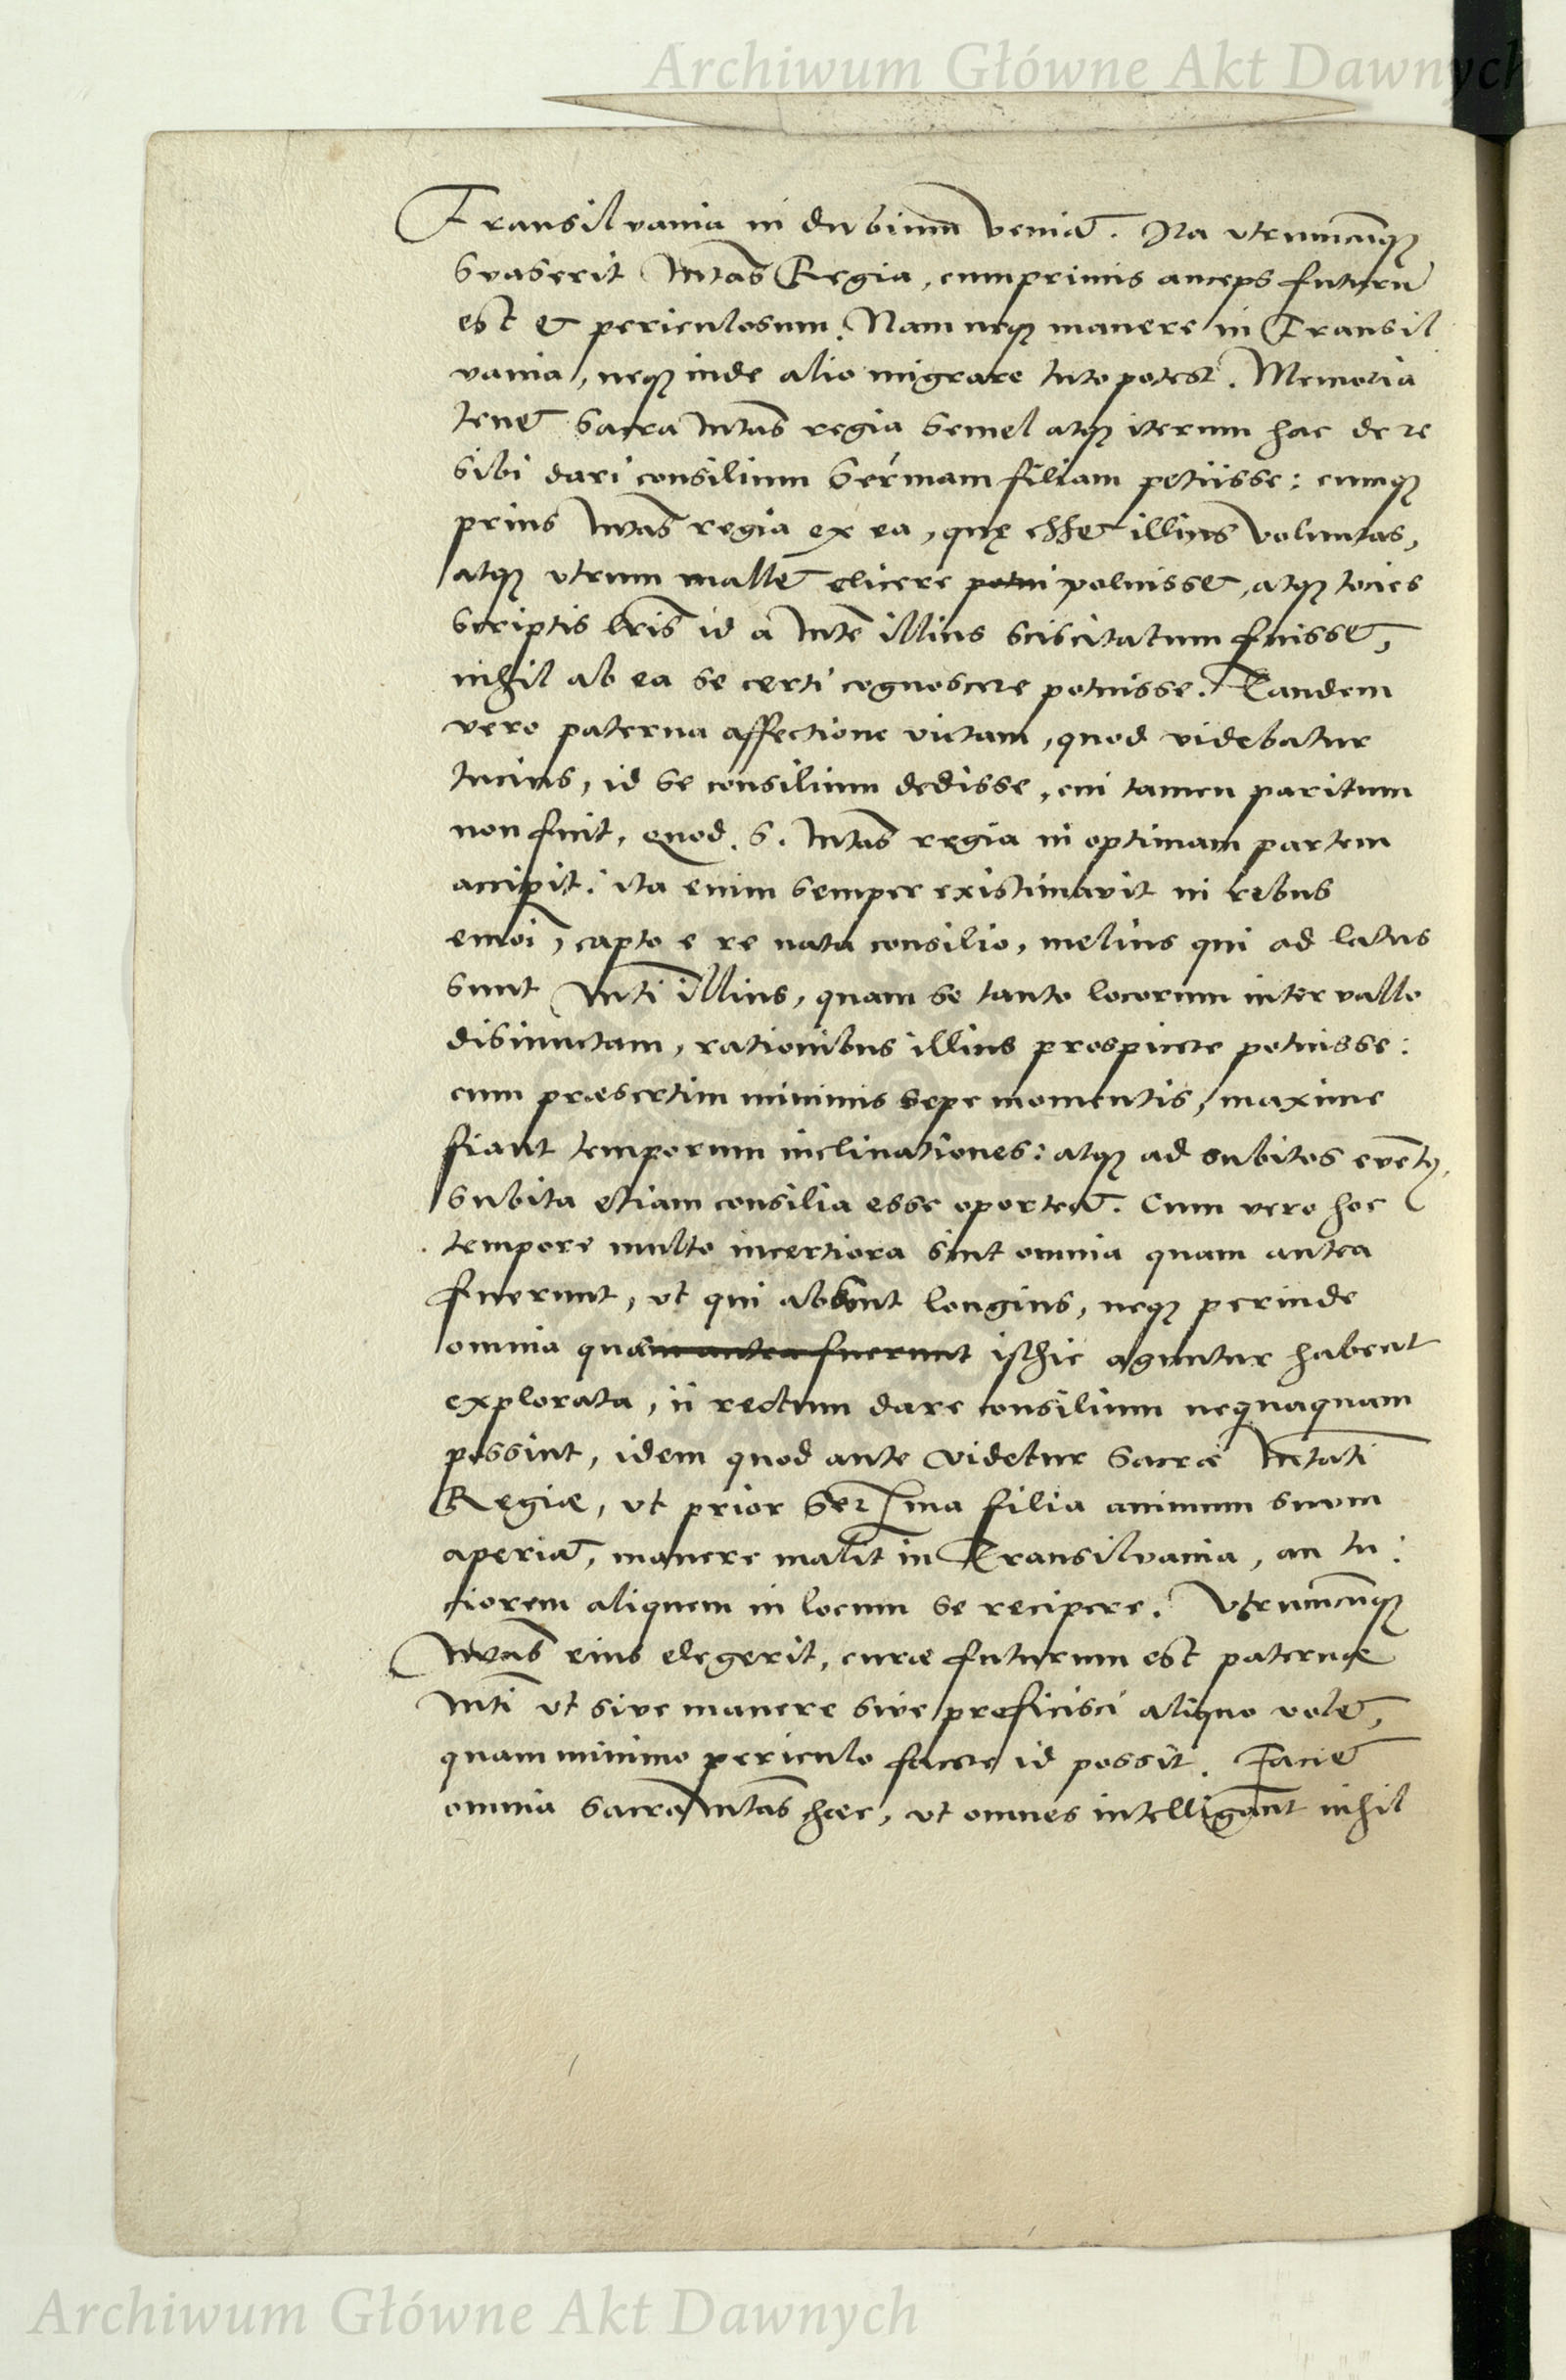 Archiwum Główne Akt Dawnych
Transilvania in dubium veniat. Ita utrumcunq;
Suaserit Mtas Regia, cumprimis anceps futurū
est & periculosum. Nam neq; manere in Transil
vania, neq; inde alio migrare tuto potest. Memoria
tenet Sacra Mtas regia semel atq; iterum hac de re
sibi dari consilium Sermam filiam petiisse: cumq;
prius Mtas regia ex ea, quę esset illius voluntas,
atq; utrum mallet elicere potui voluisset, atq; tocies
scriptis lris id a Mte illius sciscitatum fuisset,
nihil ab ea se certi cognoscere potuisse. Tandem
vero paterna affectione victam, quod videbatur
tucius, id se consilium dedisse, cui tamen paritum
non fuit, quod. S. Mtas regia in optimam partem
accipit: ita enim semper existimavit in rebus
e re nata consilio, melius qui ad latus
sunt Mti illius, quam se tanto locorum intervallo
disiunctam, rationibus illius prospicere potuisse:
cum præsertim minimis sepe momentis, maxime
fiant temporum inclinationes: atq; ad subitos evēt9,
subita etiam consilia esse oporteat. Cum vero hoc
tempore multo incertiora sint omnia quam antea
fuerunt, ut qui absunt longius, neq; perinde
omnia quæm antea fuerunt isthic aguntur habent
explorata, ii rectum dare consilium nequaquam
possint, idem quod ante videtur Sacræ Mtati
Regiæ, ut prior Serma filia animum suum
aperiat, manere malit in Transilvania, an tu:
tiorem aliquem in locum se recipere. Utrumcunq;
Mtas eius elegerit, curæ futurum est paternæ
Mti ut sive manere sive proficisci aliquo volet,
quam minimo periculo facere id possit. Faciet
omnia sacra Mtas hæc, ut omnes intelligant nihil
Archiwum Główne Akt Dawnych